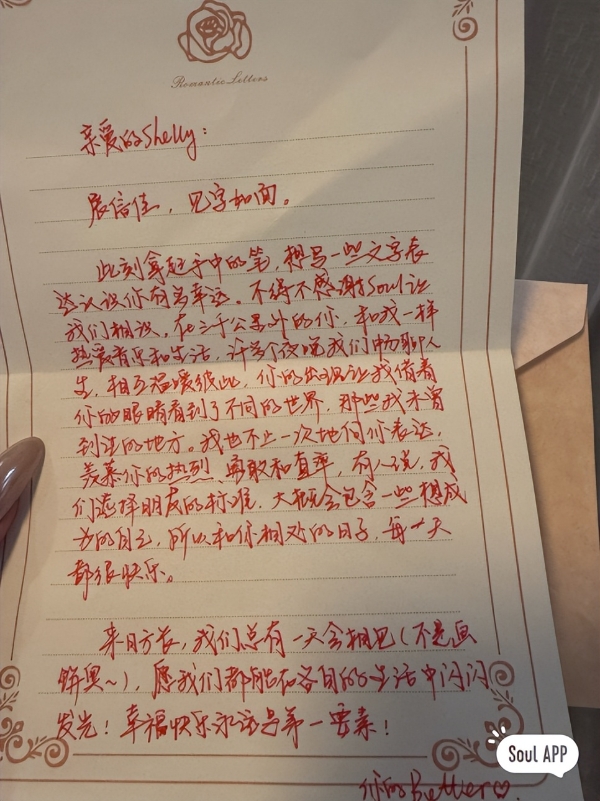 Romantic Letters
亲爱的Shelly:
展信佳，见字如面。
此刻拿起手中的笔，想写一些文字表
达认识你有多幸运。不得不感谢Soul让
我们相识，在三千公里外的你，和我一样
热爱音乐和生活，许多个夜晚我们畅聊人
生，相互温暖彼此，你的出现让我借着
你的眼睛看到了不同的世界，那些我未曾
到过的地方。我也不止一次地向你表达，
羡慕你的热烈、勇敢和直率，有人说，我
们选择朋友的标准，大概会包含一些想成
为的自己，所以和你相处的日子，每一天
都很快乐。
来日方长，我们总有一天会相见(不是画
饼奥~)，愿我们都能在各自的生活中闪闪
发光！幸福快乐永远是第一要素！
你的Better♡
Soul APP